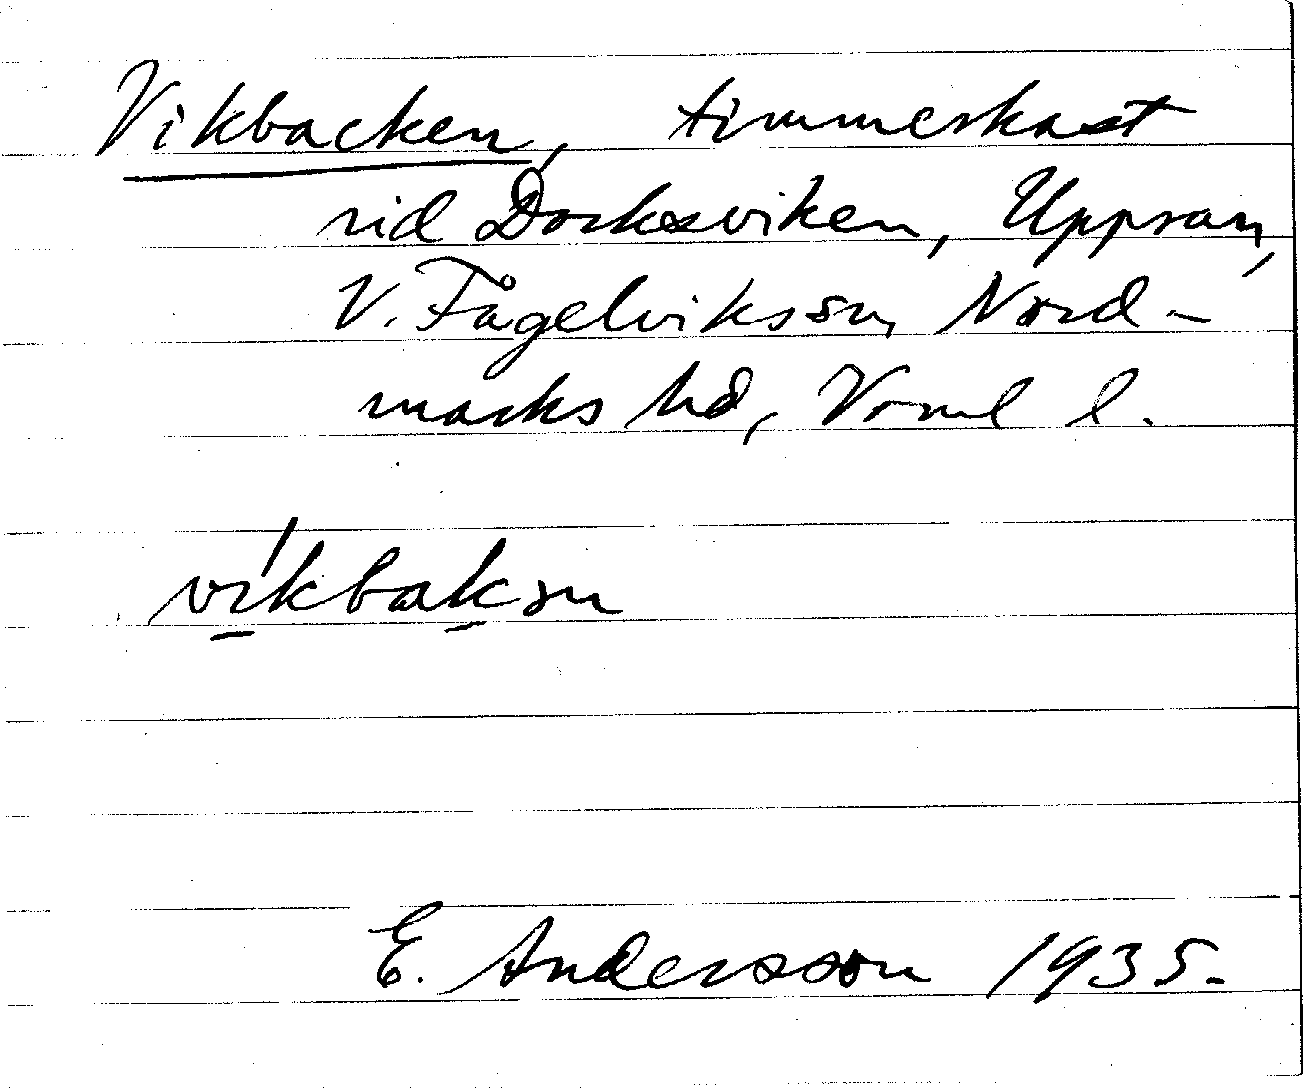 Vikbacken, timmerkast
vid Dorksviken, Uppsan,
V. Fågelviks sn, Nord-
marks hd, Vrml l.
víkbakən
E. Andersson 1935.